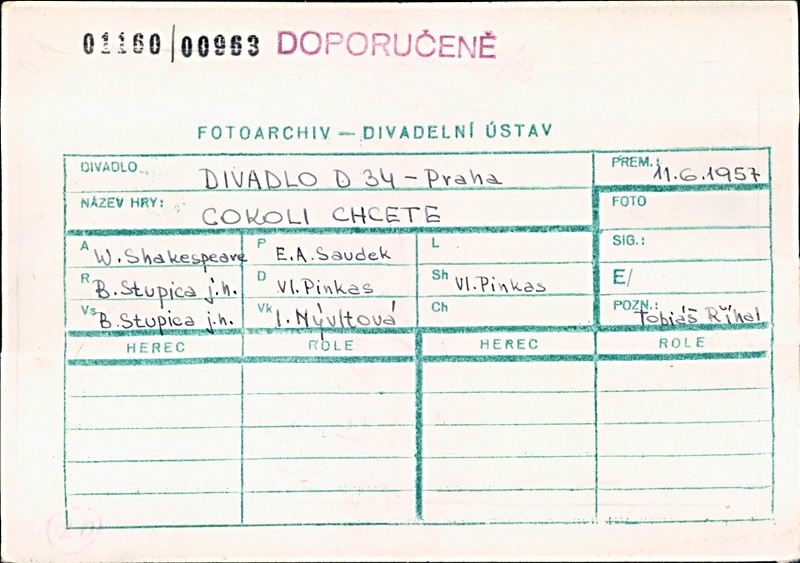 01160/00963 DOPORUČENĚ
FOTOARCHIV — DIVADELNÍ ÚSTAV
DIVADLO DIVADLO D 34 – Praha
PREM.: 11.6.1957
NÁZEV HRY: COKOLI CHCETE
FOTO
A W. Shakespeare P E.A. Saudek L
SIG.:
R B. Stupica j.h. D Vl. Pinkas Sh Vl. Pinkas
E/
Vs B. Stupica j.h. Vk I. Nývltová Ch
POZN.: Tobiáš Říhal
HEREC ROLE HEREC ROLE